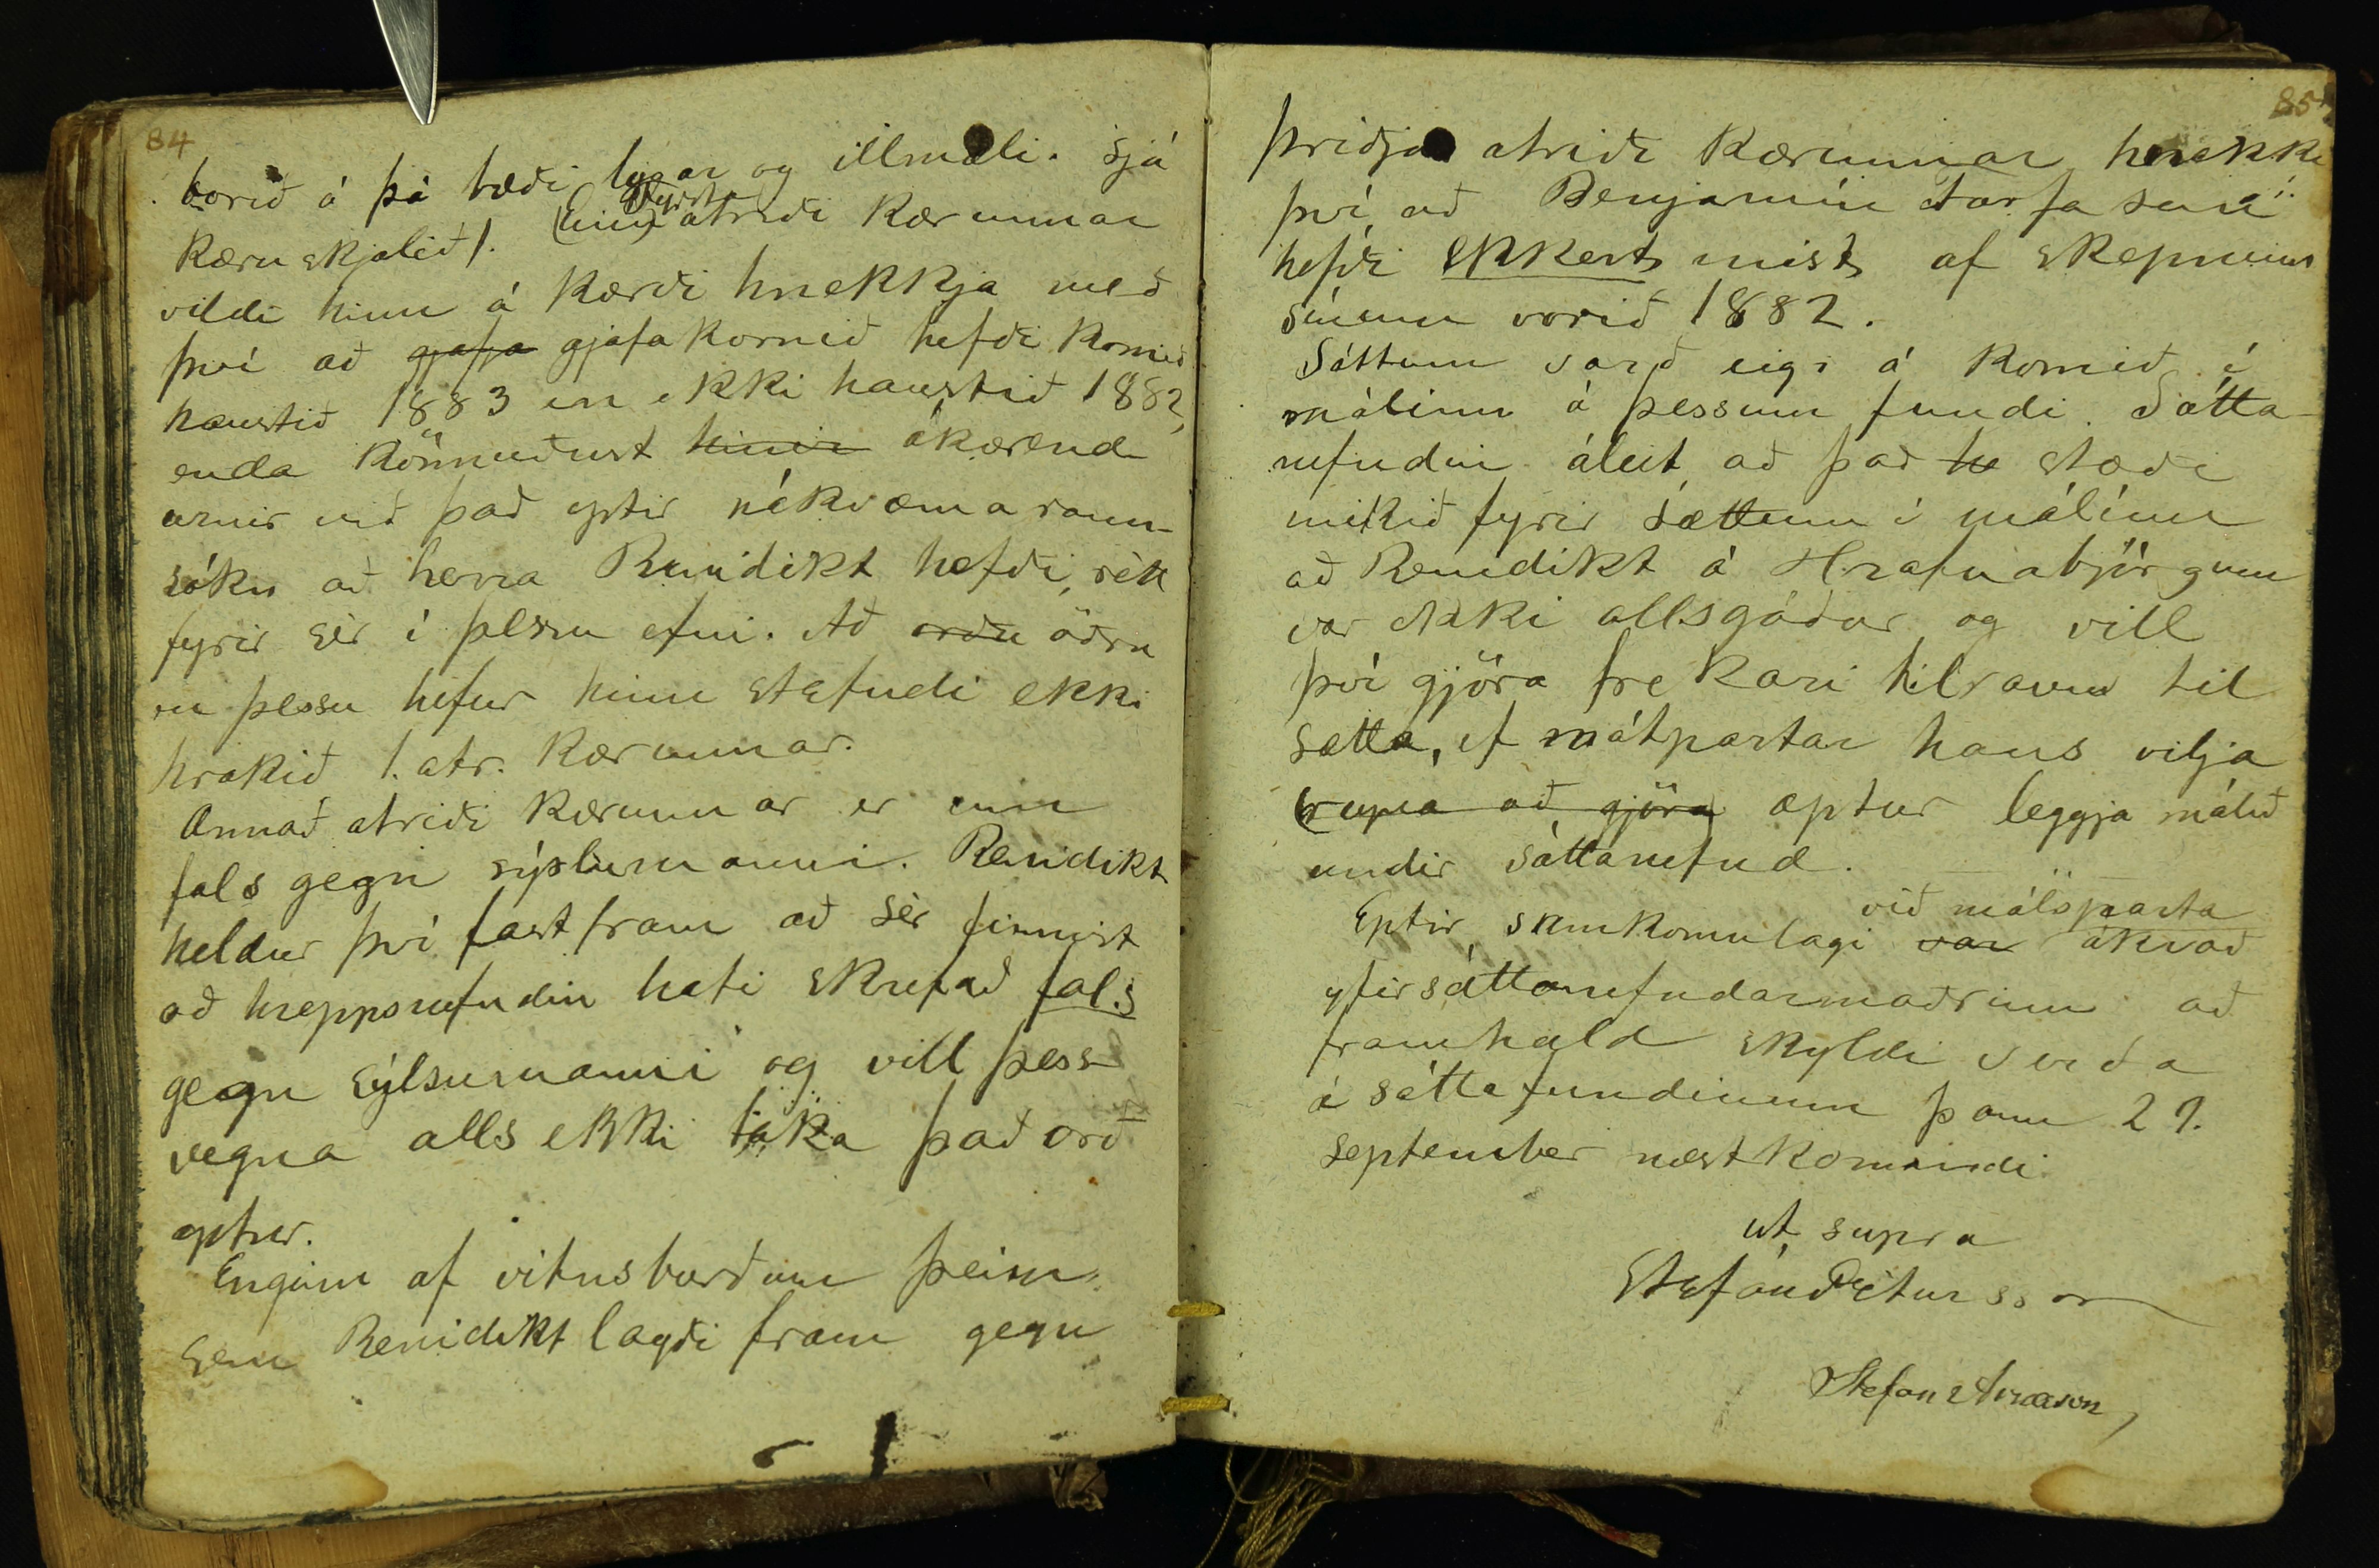 84
borið á þá bæði lygar og illmæli. Sjá
Fyrst
Kæru skjalið/. (Einu) atriði Kærunnar
vildi hinn á Kærði hnekkja með
því að gjafa gjafa Kornið hefði Komið
haustið 1883 en ekki haustið 1882,
enda Könnuðust hinir ákærend
urnir við það eptir nákvæma rann-
sókn að herra Benidikt hefði, rétt
fyrir sér í þessu efni. Að orðu öðru
en þessu hefur hinn stefndi ekki
hrakið 1. atr. Kærunnar.
Annað atriði Kærunnar er um
fals gegn sýslumanni. Benidikt
heldur því fast fram að sér finnist
að hreppsnefndin hafi skrifað fals
gegn sýlsumanni og vill þess
vegna alls ekki taka það orð
aptur.
Enginn af vitnsburðum þeim
sem Benidikt lagði fram gegn
85
þriðja atriði Kærunnar hnekki
því að Benjamín Torfason
hefði ekkert mist af skepnum
sínum vorið 1882.
Sáttum varð eigi á Komið í
málinu á þessum fundi. Sátta-
nefndin áleit að það he stæði
mikið fyrir sættum í málinu
að Benidikt á Hrafnabjörgum
var ekki allsgáður og vill
því gjöra frekari tilraun til
sætta, ef mótpartar hans vilja
að gjöra aptur leggja málið
undir sáttanefnd.
við málsparta
Eptir samkomulagi var ákvað
yfirsáttanefndarmaðrinn að
framhald skyldi verða
á sáttafundinum þann 29.
September næstkomandi
ut supra
Stefán Pétursson
Stefan Árnason,